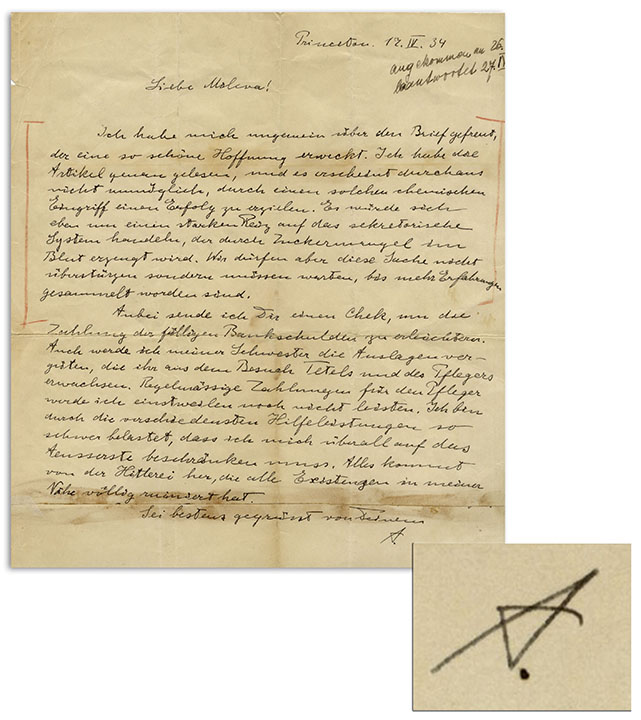 Princeton. 17. IV. 34
angekommen am 26.
beantwortet 27. IV
Liebe Mileva!
Ich habe mich ungemein über den Brief gefreut,
der eine so schöne Hoffnung erweckt. Ich habe die
Artikel genau gelesen, und es erscheint durchaus
nicht unmöglich, durch einen solchen chemischen
Eingriff einen Erfolg zu erzielen. Es würde sich
eben um einen starken Reiz auf das sekretorische
System handeln, der durch Zuckermangel im
Blut erzeugt wird. Wir dürfen aber diese Sache nicht
überstürzen sondern müssen warten, bis mehr Erfahrungen
gesammelt worden sind.
Anbei sende ich Dir einen Chek, um die
Zahlung der fälligen Bankschulden zu erleichtern.
Auch werde ich meiner Schwester die Auslagen ver-
güten, die ihr aus dem Besuch Tetels und des Pflegers
erwachsen. Regelmässige Zahlungen für den Pfleger
werde ich einstweilen noch nicht leisten. Ich bin
durch die verschiedensten Hilfeleistungen so
schwer belastet, dass ich mich überall auf das
Aeusserste beschränken muss. Alles kommt
von der Hitlerei her, die alle Existenzen in meiner
Nähe völlig ruiniert hat
Sei bestens gegrüsst von Deinem
A.
A.